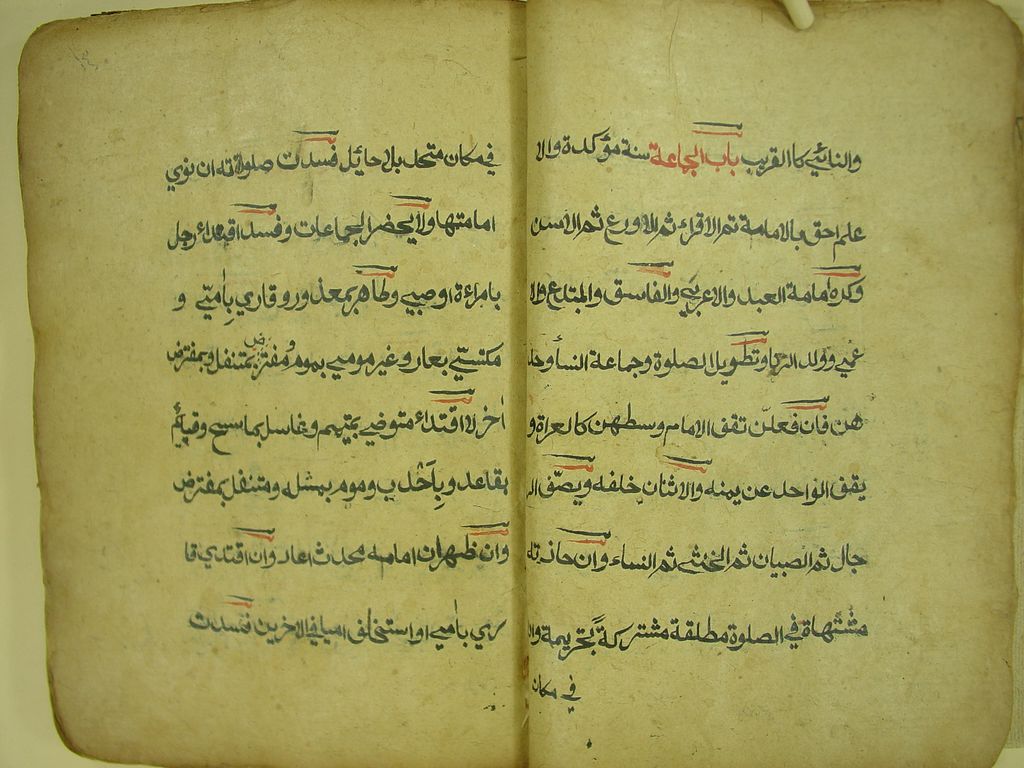 والنائي كالقريب باب الجماعة سنة مؤكدة والا
علم احق بالامامة ثم الاقراء ثم الاورع ثم الاسن
وكره امامة العبد والاعربي والفاسق والمبتدع والا
عمي وولد الزنا وتطويل الصلوة وجماعة النسأ وحد
هن فان فعلن تقف الامام وسطهن كالعراة و
يقف الواحد عن يمنه والاثنان خلفه ويصف الر
جال ثم الصبيان ثم الخنثي ثم النساء وان حاذته
مشتهاة في الصلوة مطلقة مشتركة تحريمة وا
في مكان
في مكان متحد بلا حائل فسدت صلوته ان نوي
امامتها ولا يحضر الجماعات وفسد اقتداء رجل
بامراءة او صبي وطاهر بمعذور وقاري بامي و
مكتسي بعار وغير مومي بموم ومفترض بمتنفل وبمفترض
اخر لا اقتداء متوضي بمتيمم وغاسل بماسح وقايم
بقاعد وباحدب وموم بمثله ومتنفل بمفترض
وان ظهر ان امامه محدث اعاد وان اقتدي قا
ري بامي او استخلف اميا في الاخرين فسدت